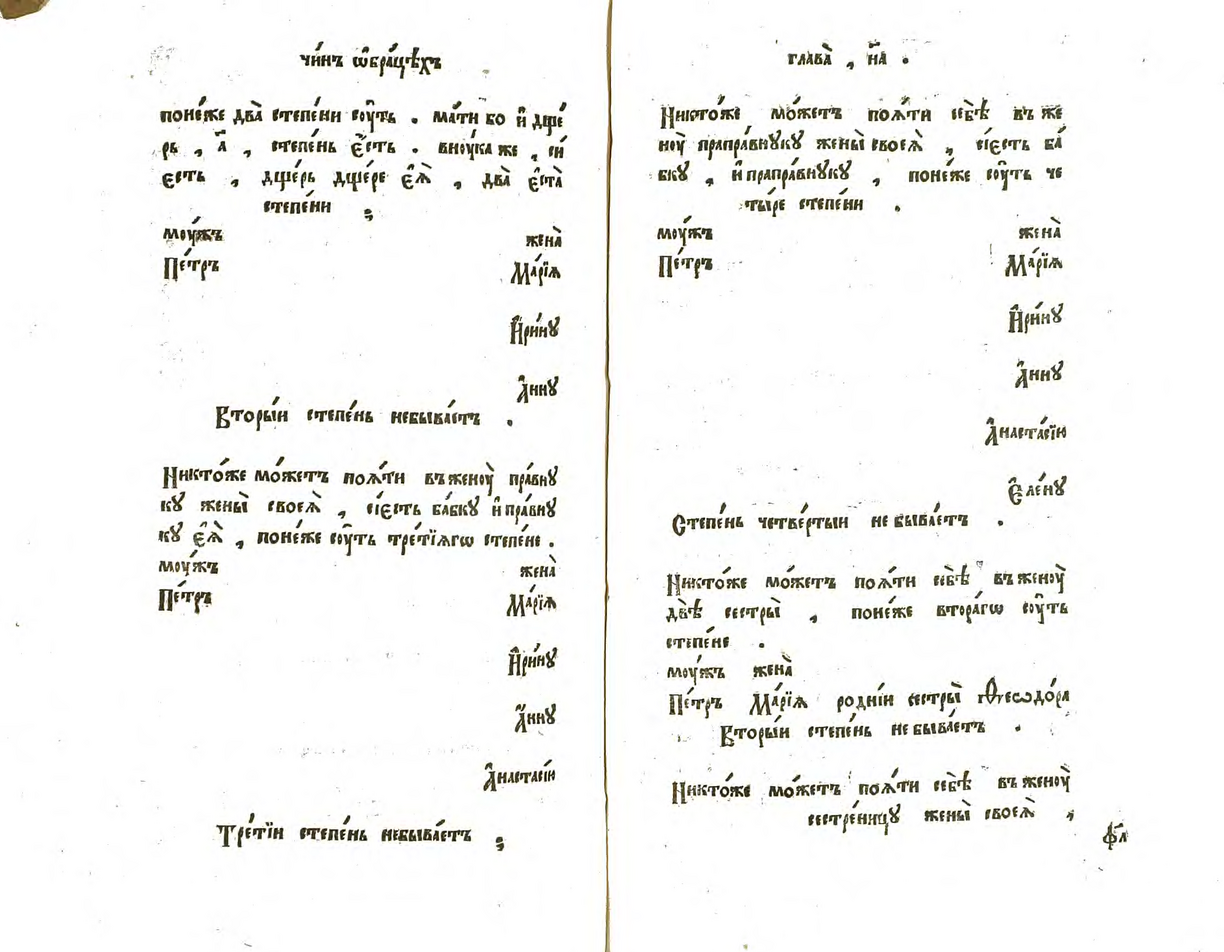 чи́нъ ѡ҆бра́цѣхъ
поне́же два̀ степе́ни сꙋ́ть . ма́ти бо и҆ дще́
рь , а҃ , степе́нь є҆́сть . внꙋ́ка же , сі́
є҆сть , дще́рь дще́ре є҆ѧ̀ , два̀ є҆ста̀
степе́ни ;
моу́жъ жена̀
Пе́тръ Марі́ꙗ
И҆ри́нꙋ
А҆́ннꙋ
Вторы́и степе́нь небыва́етъ .
Никто́же мо́жетъ поѧ́ти въженоу̀ пра́внꙋ
кꙋ жены̀ своеѧ̀ , сі́єсть ба́бкꙋ и҆ пра́внꙋ
кꙋ є҆ѧ̀ , поне́же соу́ть тре́тїѧгѡ степе́не .
моу́жъ жена̀
Пе́тръ Марі́ꙗ
И҆ри́нꙋ
А҆́ннꙋ
А҆настасі́и
Тре́тїи степе́нь небыва́етъ ;
глава̀ , н҃а .
Никто́же мо́жетъ поѧ́ти себѣ̀ въ же
ноу̀ прапра́внꙋкꙋ жены̀ своеѧ̀ , сі́єсть ба́
бкꙋ , и҆ прапра́внꙋкꙋ , поне́же соу́ть че
ты́ре степе́ни .
моу́жъ жена̀
Пе́тръ Марі́ꙗ
И҆ри́нꙋ
А҆́ннꙋ
А҆настасі́ю
Є҆ле́нꙋ
Степе́нь четве́ртыи не быва́етъ .
Никто́же мо́жетъ поѧ́ти себѣ̀ въ женоу̀
двѣ̀ сестры̀ , поне́же втора́гѡ соу́ть
степе́не .
моу́жъ жена̀
Пе́тръ Марі́ꙗ родні́и сестры̀ Ѳеѡдо́ра
Вторы́и степе́нь не быва́етъ .
Никто́же мо́жетъ поѧ́ти себѣ̀ въ женоу̀
сестре́ницꙋ жены̀ своеѧ̀ ,